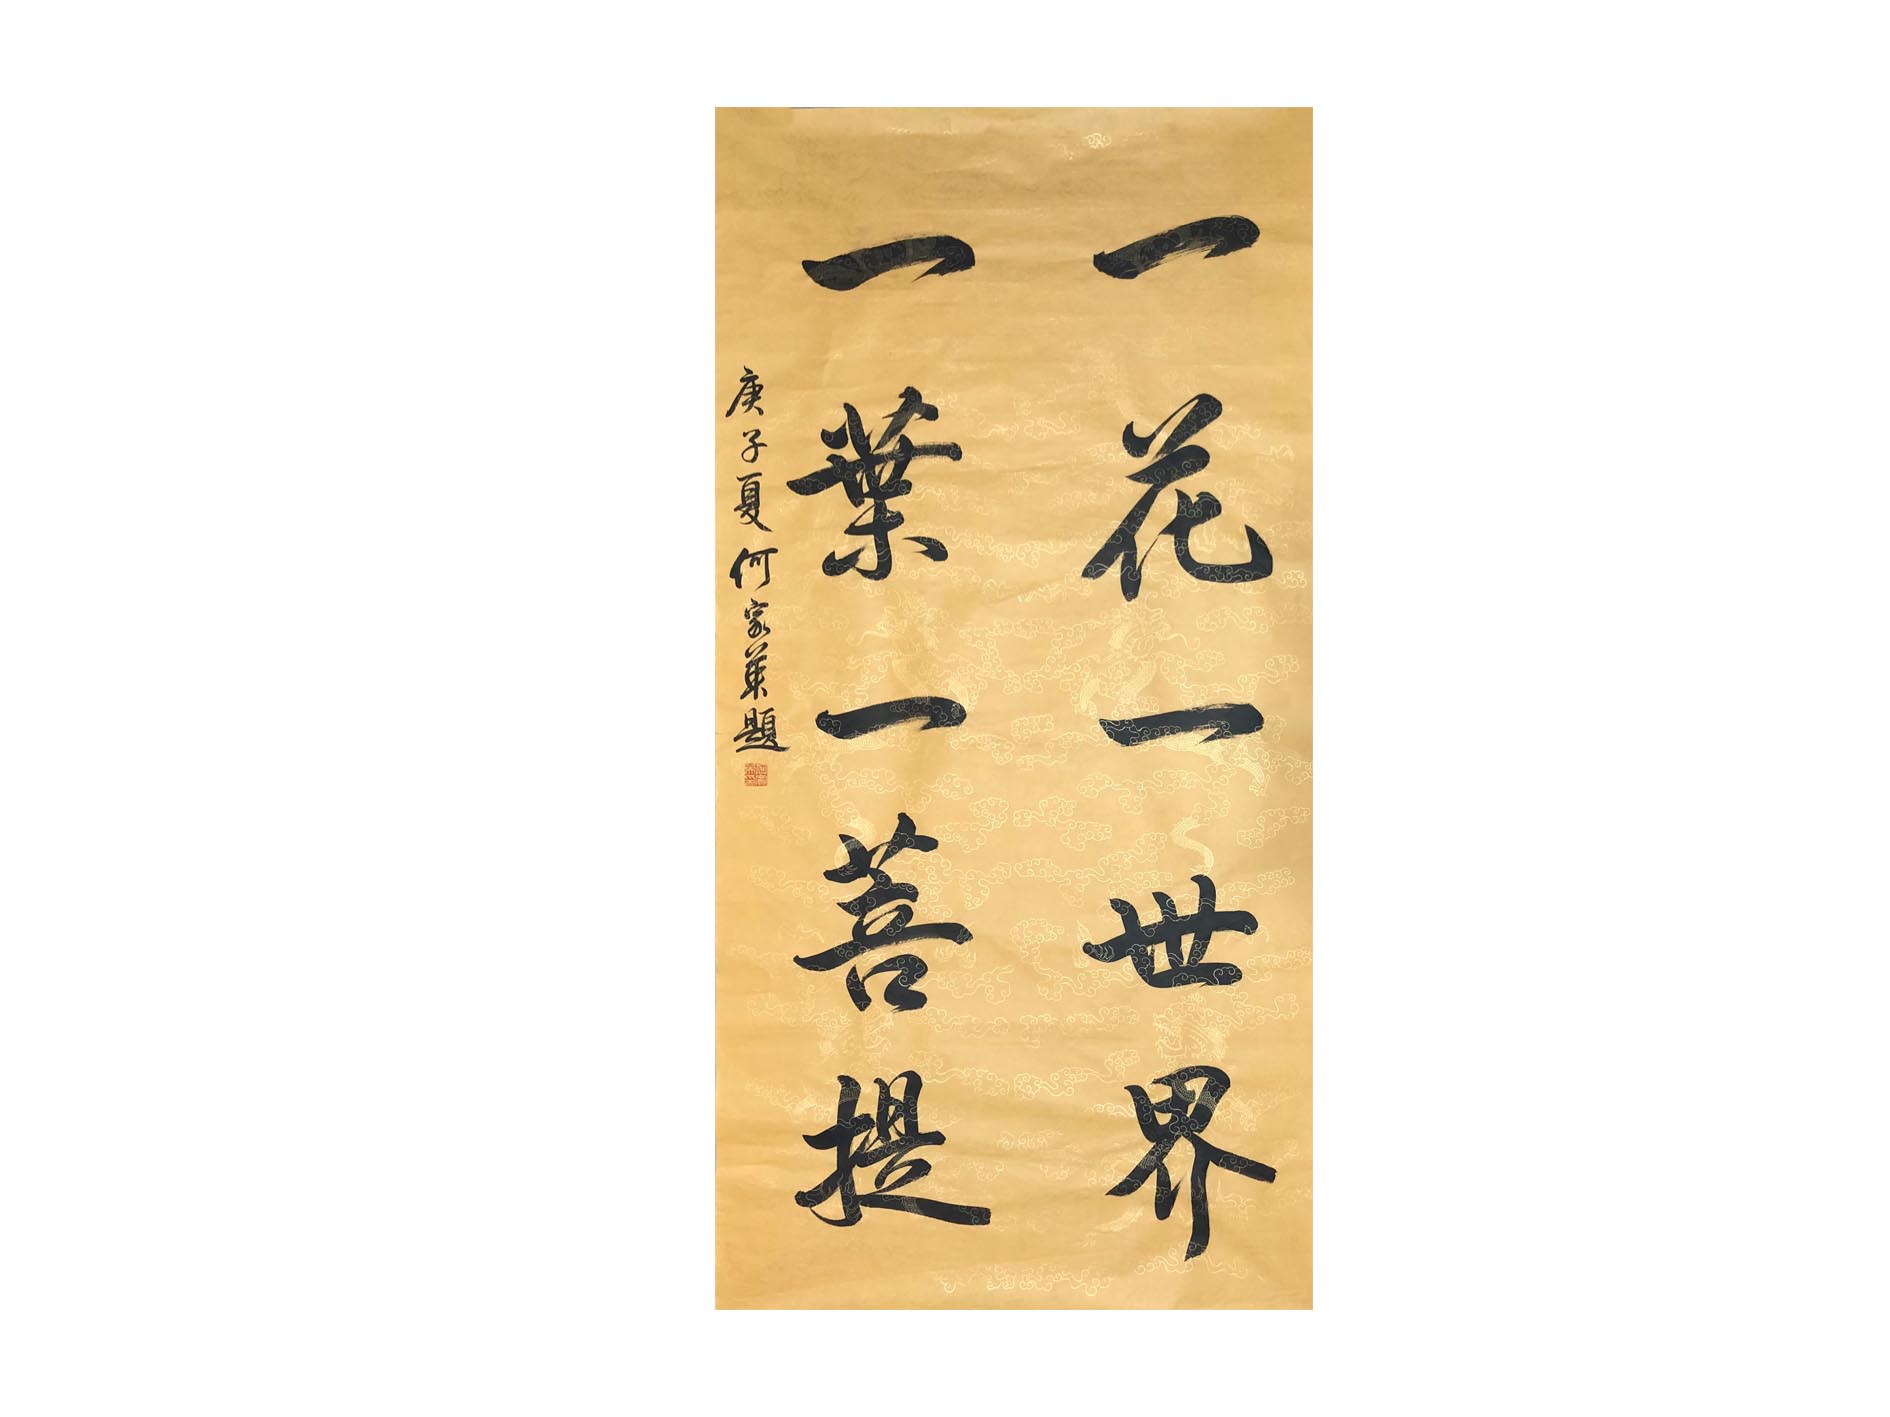 一花一世界
一葉一菩提
庚子夏何家英題